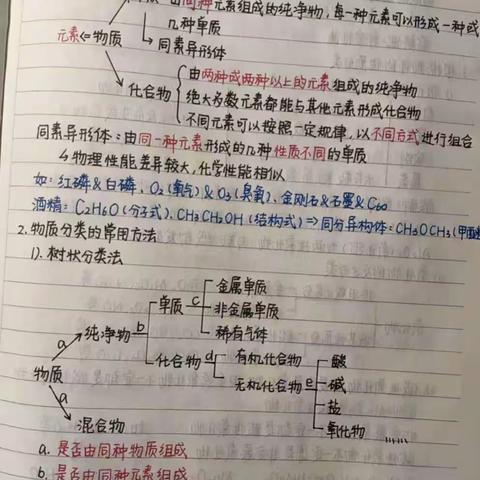 由同种元素组成的纯净物,每一种元素可以形成一种或
几种单质
元素⇐物质 → 同素异形体
由两种或两种以上的元素组成的纯净物
化合物 绝大多数元素都能与其他元素形成化合物
不同元素可以按照一定规律,以不同方式进行组合
同素异形体:由同一种元素形成的几种性质不同的单质
↳物理性能差异较大,化学性能相似
如:红磷&白磷,O₂(氧气)&O₃(臭氧),金刚石&石墨&C60
酒精:C₂H₆O(分子式),CH₃CH₂OH(结构式)⇒同分异构体:CH₃OCH₃(甲醚
2.物质分类的常用方法
1).树状分类法
金属单质
单质 c 非金属单质
a 纯净物 b 稀有气体
化合物 d 有机化合物 酸
物质 无机化合物 e 碱
a 盐
混合物 氧化物 ……
a.是否由同种物质组成
b.是否由同种元素组成